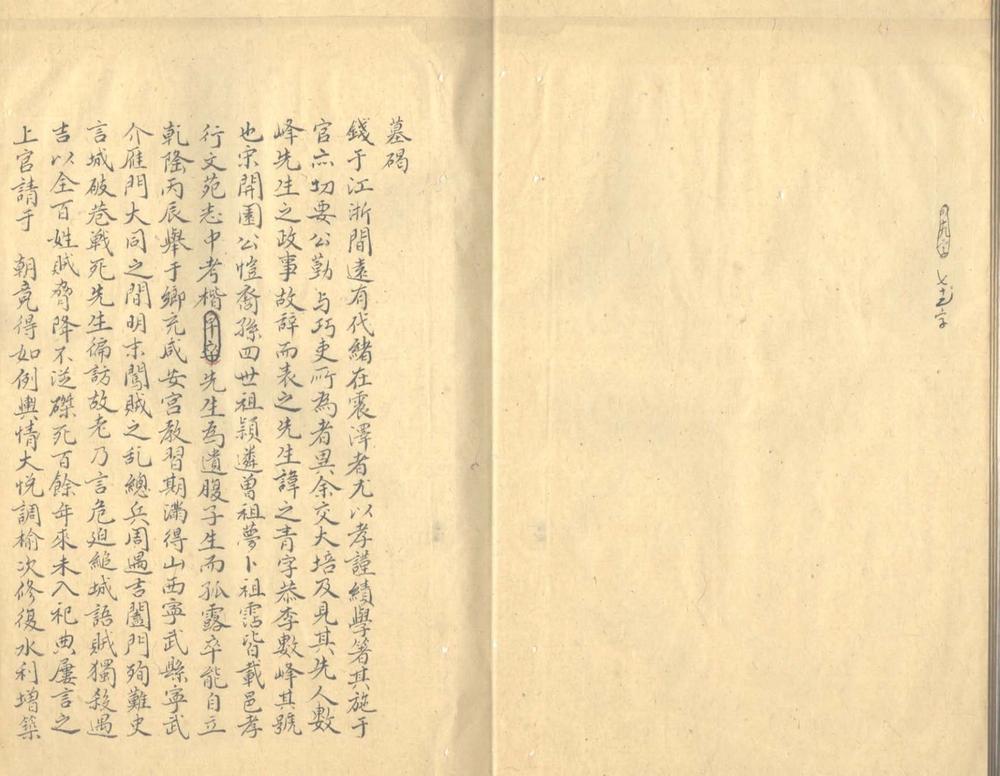 七十五字
墓碣
錢于江浙間遠有代緒在震澤者尤以孝謹績學著其施于
官亦切要公勤与巧吏所為者異余交大培及見其先人數
峰先生之政事故辭而表之先生諱之青字恭李數峰其號
也宋開國公愷裔孫四世祖穎遴曾祖夢卜祖霑皆載邑孝
行文苑志中考楷早卒先生為遺腹子生而孤露卒能自立
乾隆丙辰舉于鄉充咸安宮教習期滿得山西寧武縣寧武
介雁門大同之間明末闖賊之乱總兵周遇吉闔門殉難史
言城破巷戰死先生徧訪故老乃言危迫縋城語賊獨殺遇
吉以全百姓賊脅降不從磔死百餘年來未入祀典屢言之
上官請于　朝竟得如例輿情大悅調榆次修復水利增築